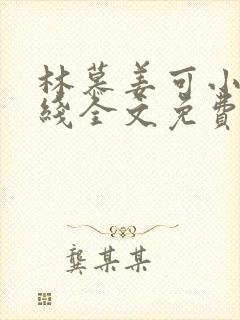 林慕姜可小
线全文免费
龚某某